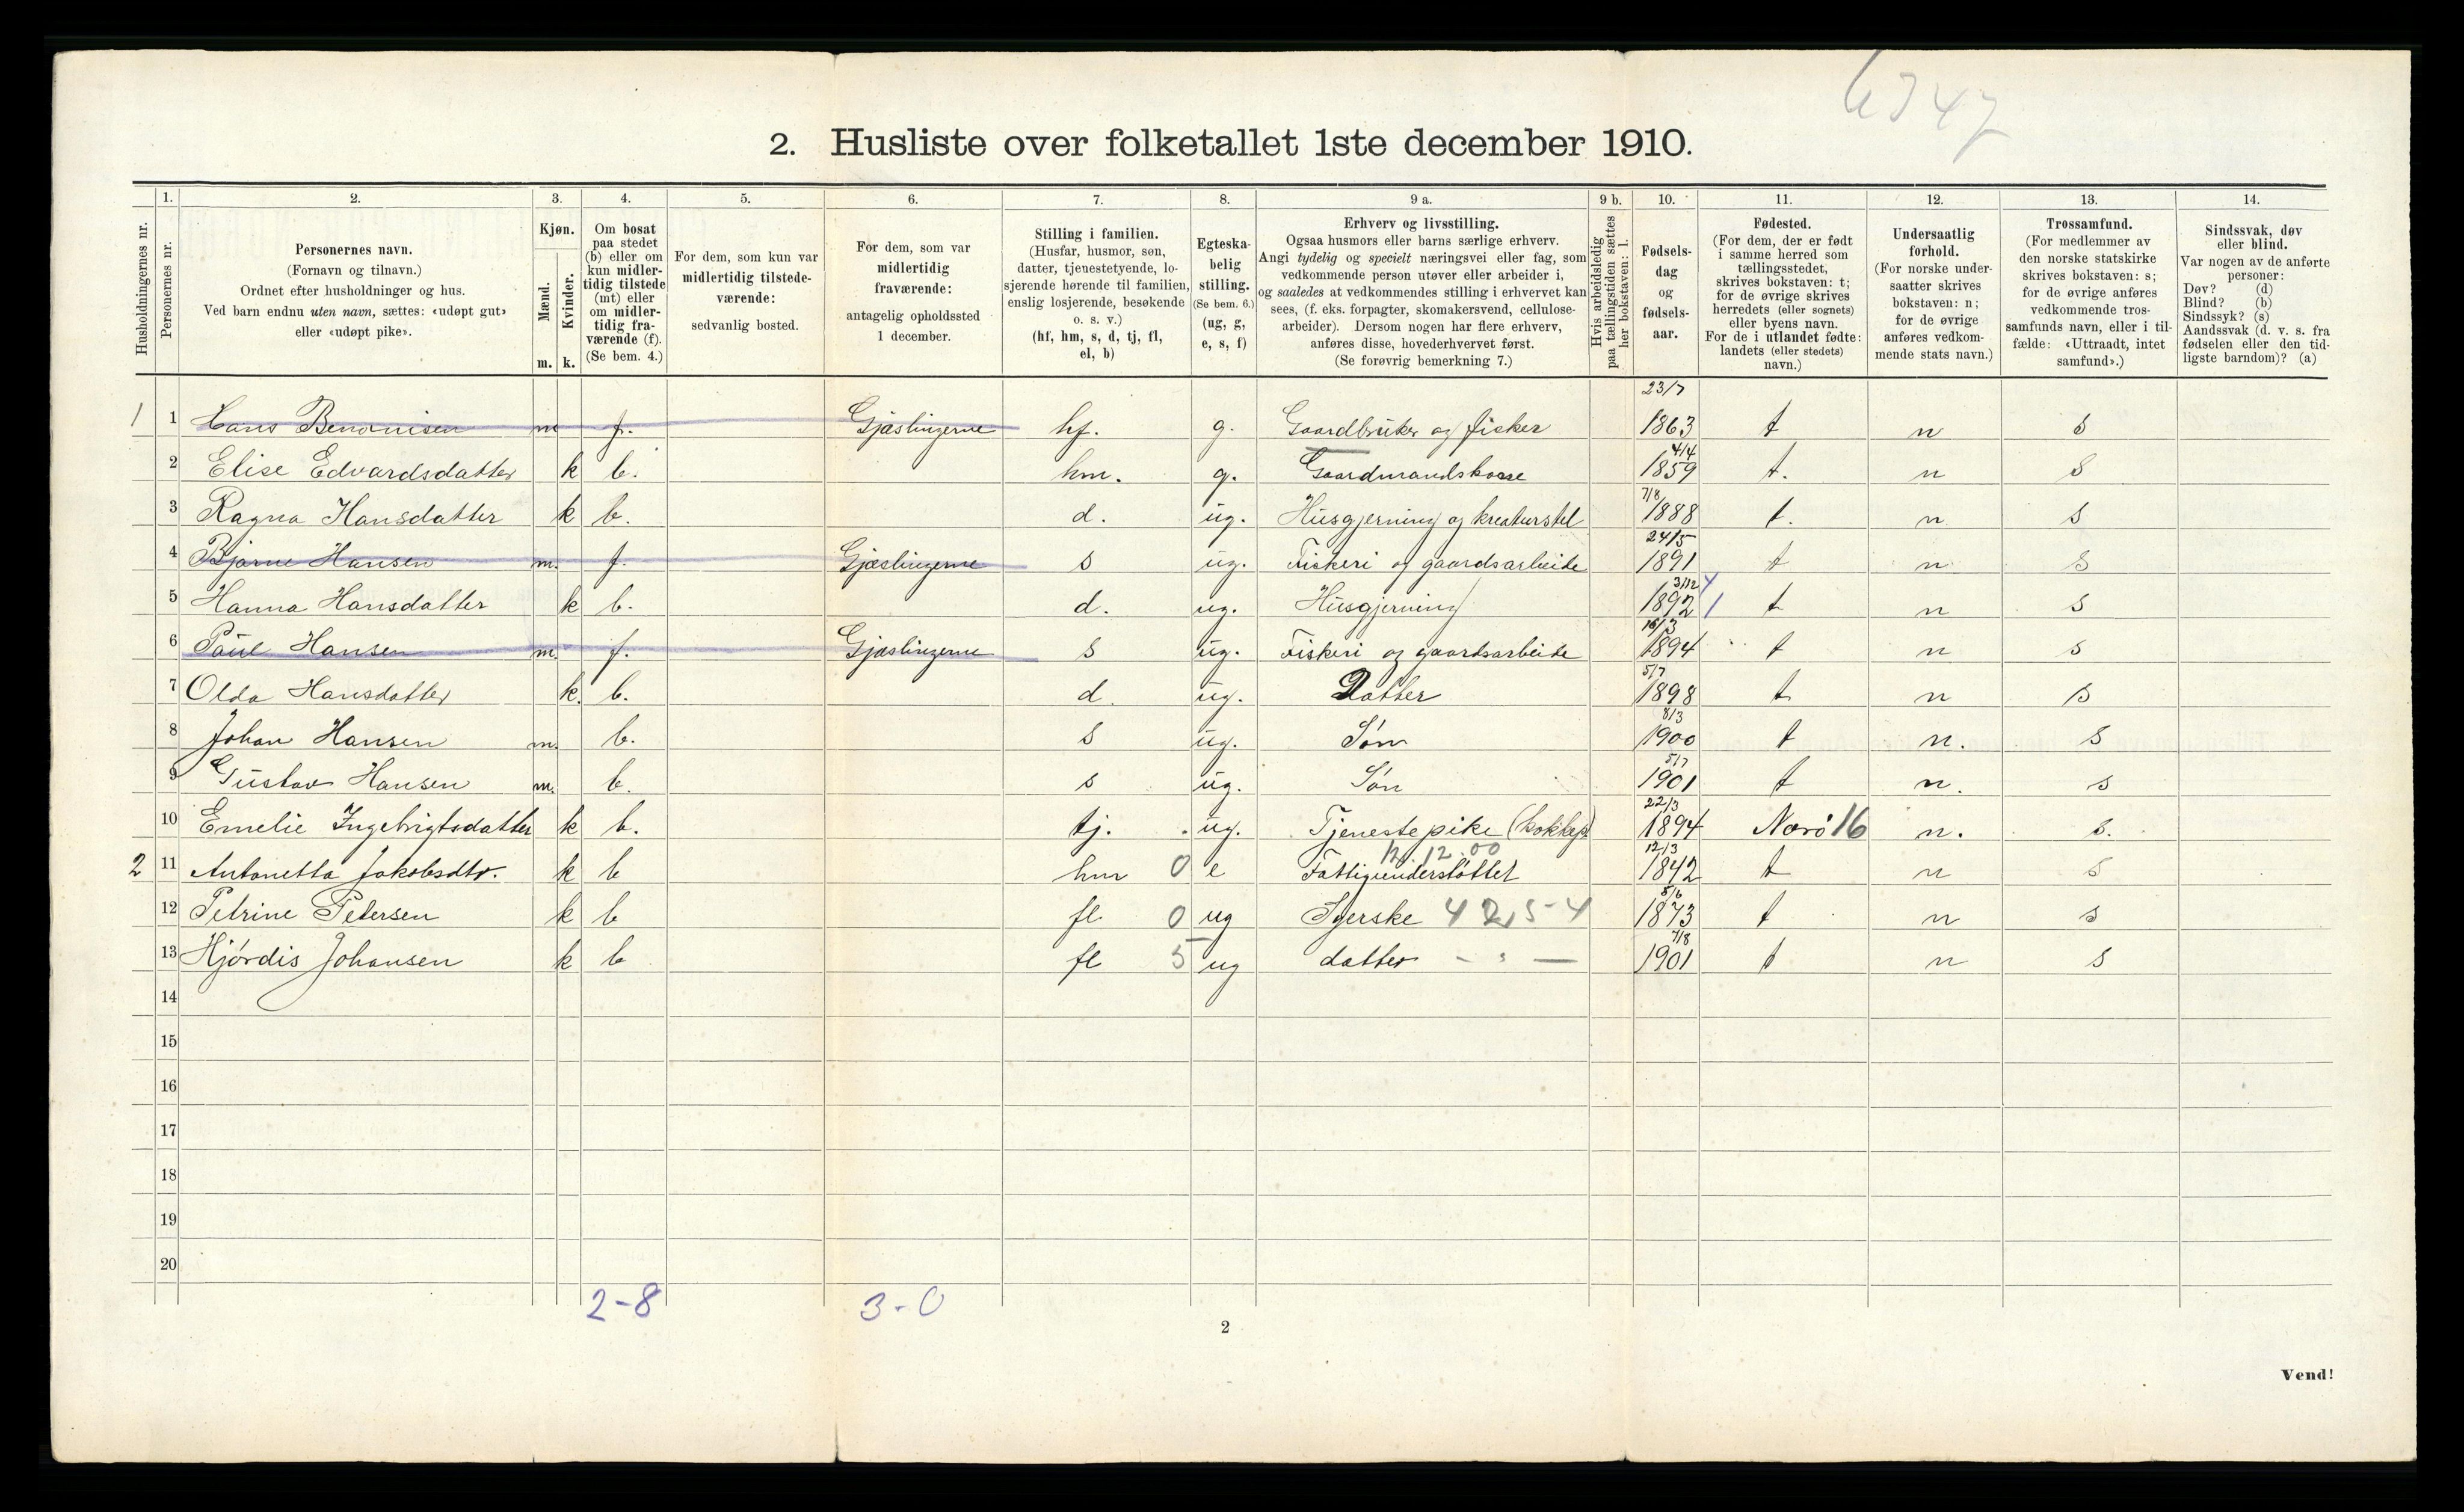 6347
2. Husliste over folketallet 1ste december 1910.
Husholdningernes nr.
1.
Personernes nr.
2.
Personernes navn.
(Fornavn og tilnavn.)
Ordnet efter husholdninger og hus.
Ved barn endnu uten navn, sættes: «udøpt gut»
eller «udøpt pike».
3.
Kjøn.
Mænd.
Kvinder.
m. k.
4.
Om bosat
paa stedet
(b) eller om
kun midler-
tidig tilstede
(mt) eller
om midler-
tidig fra-
værende (f).
(Se bem. 4.)
5.
For dem, som kun var
midlertidig tilstede-
værende:
sedvanlig bosted.
6.
For dem, som var
midlertidig
fraværende:
antagelig opholdssted
1 december.
7.
Stilling i familien.
(Husfar, husmor, søn,
datter, tjenestetyende, lo-
sjerende hørende til familien,
enslig losjerende, besøkende
o. s. v.)
(hf, hm, s, d, tj, fl,
el, b)
8.
Egteska-
belig
stilling.
(Se bem. 6.)
(ug, g,
e, s, f)
9 a.
Erhverv og livsstilling.
Ogsaa husmors eller barns særlige erhverv.
Angi tydelig og specielt næringsvei eller fag, som
vedkommende person utøver eller arbeider i,
og saaledes at vedkommendes stilling i erhvervet kan
sees, (f. eks. forpagter, skomakersvend, cellulose-
arbeider). Dersom nogen har flere erhverv,
anføres disse, hovederhvervet først.
(Se forøvrig bemerkning 7.)
9 b.
Hvis arbeidsledig
paa tællingstiden sættes
her bokstaven: l.
10.
Fødsels-
dag
og
fødsels-
aar.
11.
Fødested.
(For dem, der er født
i samme herred som
tællingsstedet,
skrives bokstaven: t;
for de øvrige skrives
herredets (eller sognets)
eller byens navn.
For de i utlandet fødte:
landets (eller stedets)
navn.)
12.
Undersaatlig
forhold.
(For norske under-
saatter skrives
bokstaven: n;
for de øvrige
anføres vedkom-
mende stats navn.)
13.
Trossamfund.
(For medlemmer av
den norske statskirke
skrives bokstaven: s;
for de øvrige anføres
vedkommende tros-
samfunds navn, eller i til-
fælde: «Uttraadt, intet
samfund».)
14.
Sindssvak, døv
eller blind.
Var nogen av de anførte
personer:
Døv? (d)
Blind? (b)
Sindssyk? (s)
Aandssvak (d. v. s. fra
fødselen eller den tid-
ligste barndom)? (a)
1 1 Hans Benonisen m f. Gjæslingerne hf. g. Gaardbruker og fisker 23/7 1863 t n s
2 Elise Edvardsdatter k b. hm. g. Gaardmandskone 4/4 1859 t. n s
3 Ragna Hansdatter k b. d. ug. Husgjerning og kreaturstel 7/8 1888 t. n. s
4 Bjarne Hansen m. f. Gjæslingerne s ug. Fiskeri og gaardsarbeide 24/5 1891 t n s
5 Hanna Hansdatter k b. d. ug. Husgjerning 3/12 1892 t n s
6 Paul Hansen m. f. Gjæslingerne s ug. Fiskeri og gaardsarbeide 16/3 1894 t n s
7 Olda Hansdatter k. b. d. ug. Datter 5/7 1898 t n s
8 Johan Hansen m. b. s ug. Søn 8/3 1900 t n. s
9 Gustav Hansen m. b. s ug. Søn 5/7 1901 t n. s
10 Emelie Ingebrigtsdatter k b. tj. ug. Tjenestepike 22/3 1894 Nærö 16 n. s.
12.12.00
2 11 Antonetta Jakobsdtr. k b hm 0 e Fattigunderstøttet 12/3 1842 t n s
12 Petrine Petersen k b fl 0 ug Syerske 4 2,5-4 5/6 1873 t n s
13 Hjørdis Johansen k b fl 5 ug datter - " - 7/8 1901 t n s
14
15
16
17
18
19
20
2-8 3-0
2
Vend!